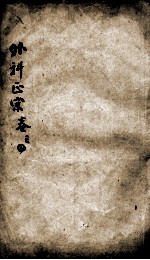 外科正宗卷之四